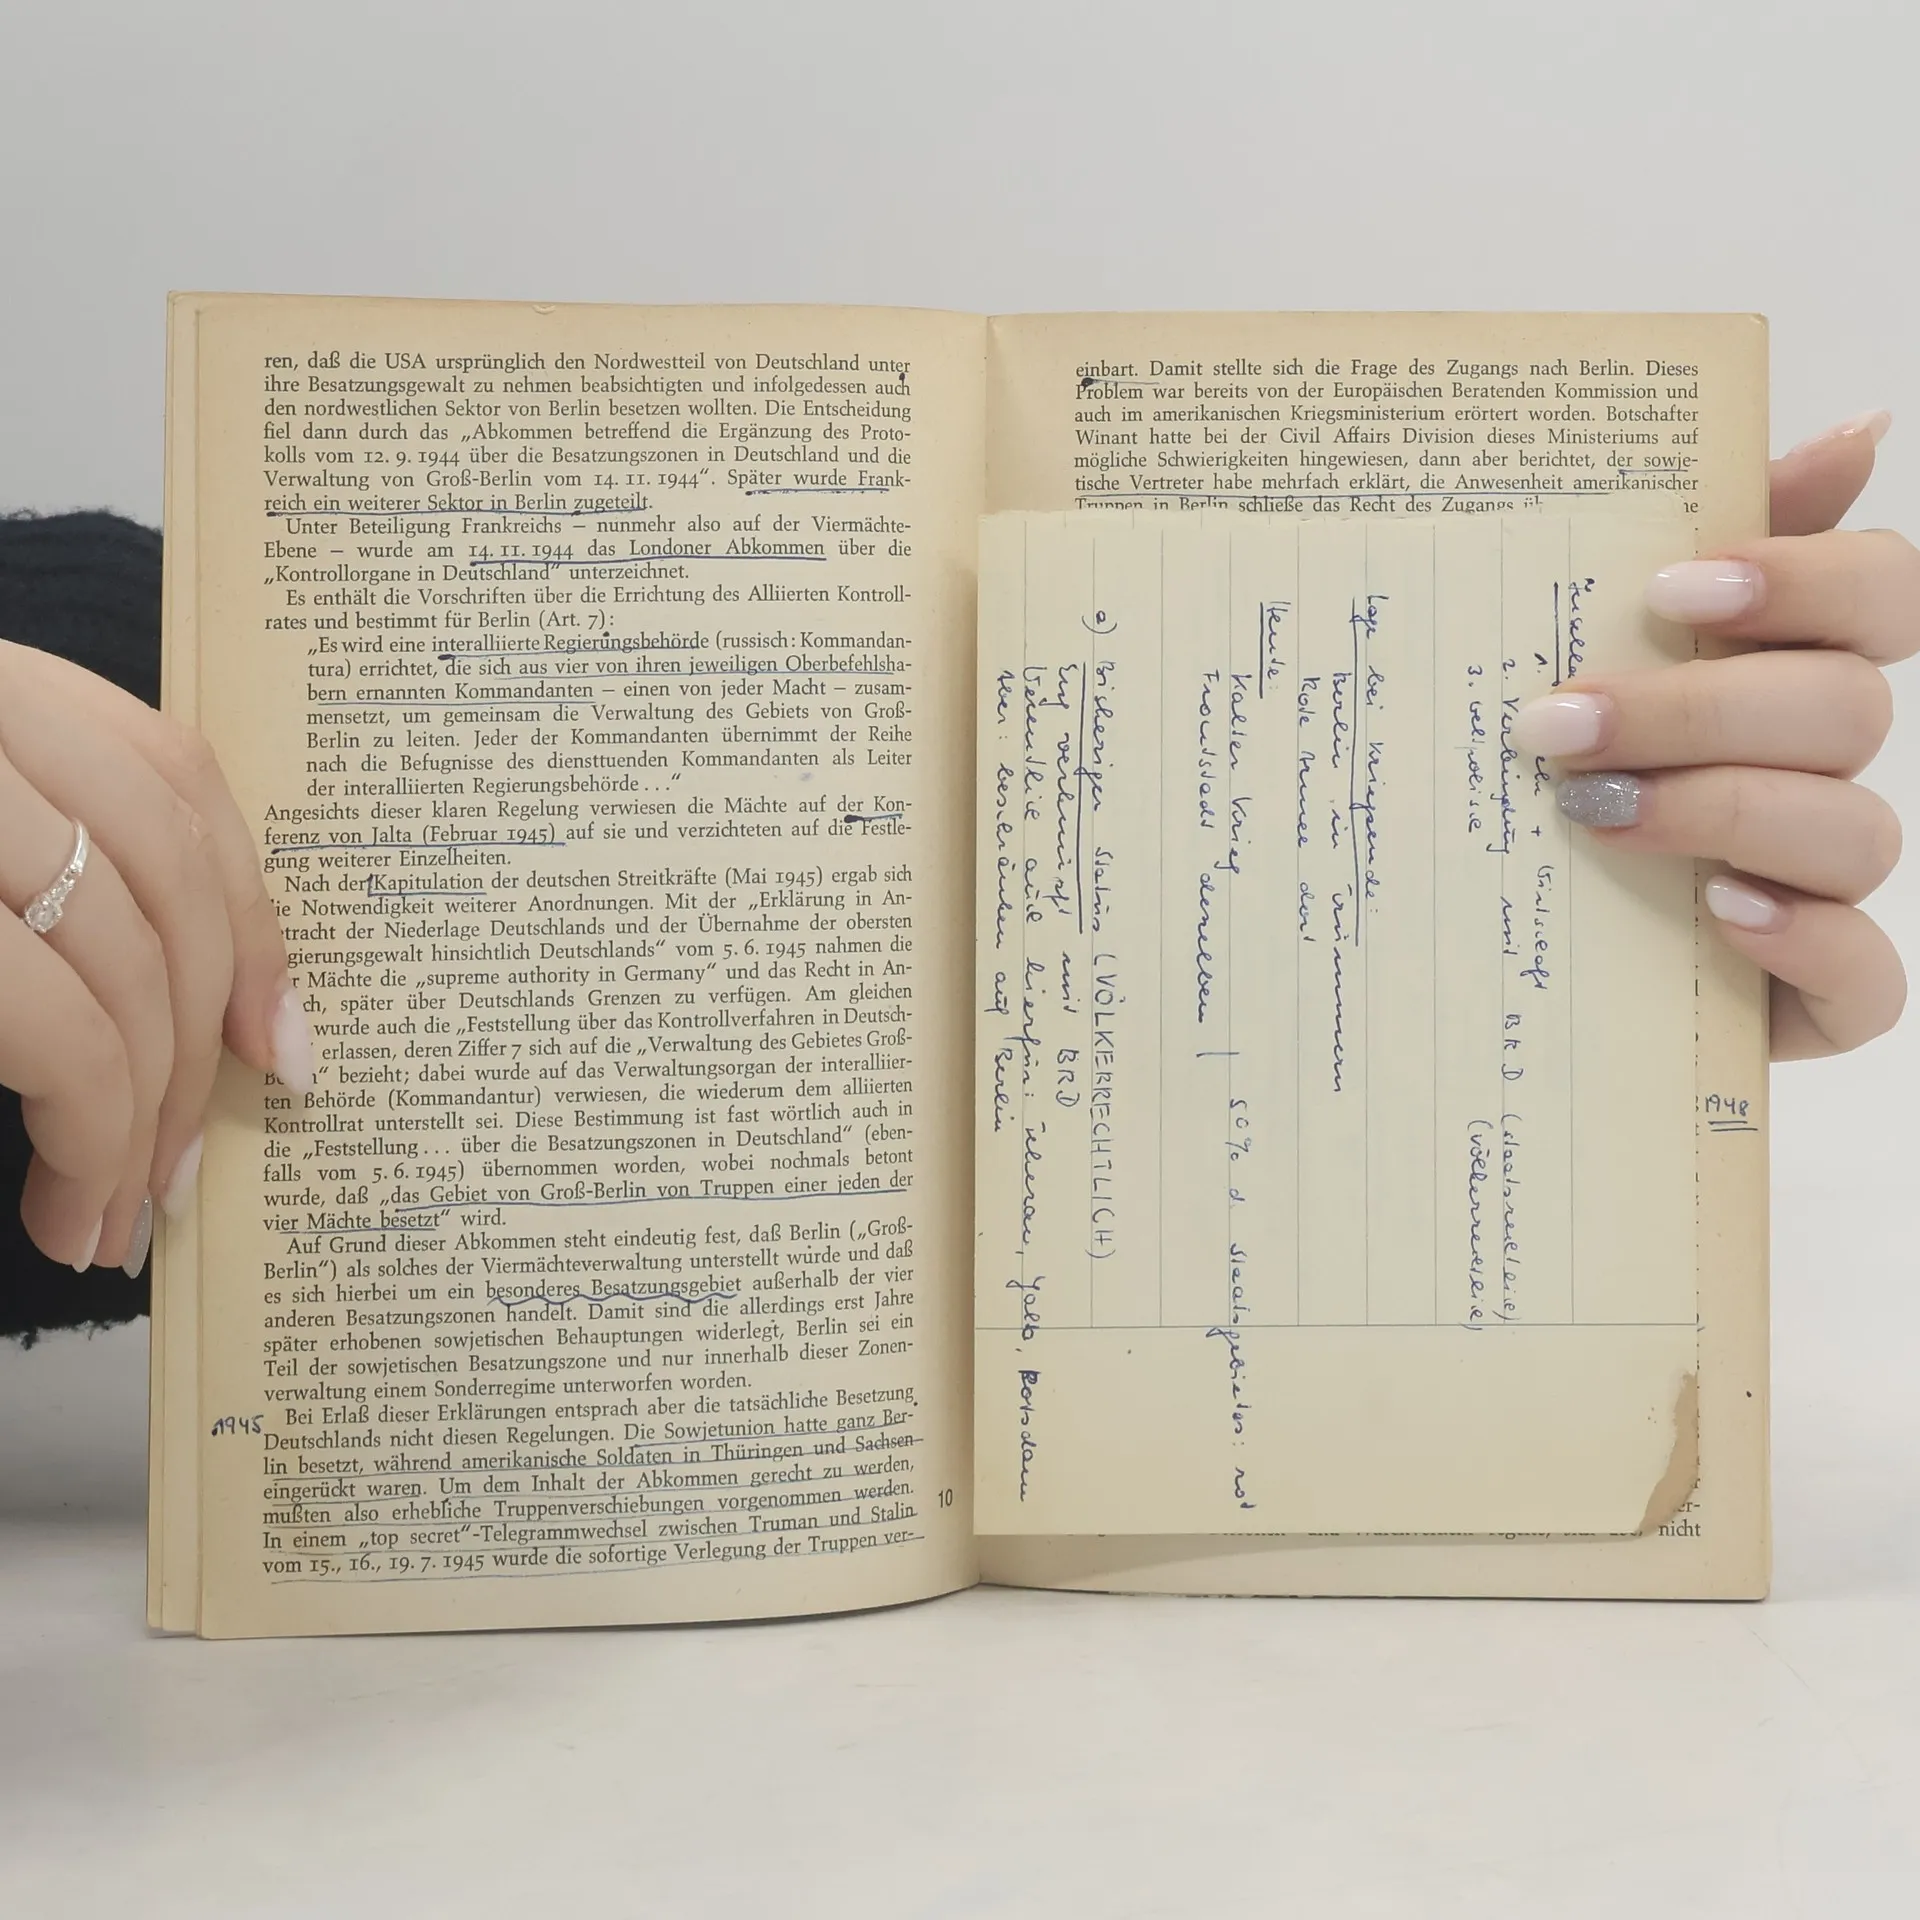 ren, daß die USA ursprünglich den Nordwestteil von Deutschland unter
ihre Besatzungsgewalt zu nehmen beabsichtigten und infolgedessen auch
den nordwestlichen Sektor von Berlin besetzen wollten. Die Entscheidung
fiel dann durch das „Abkommen betreffend die Ergänzung des Proto-
kolls vom 12. 9. 1944 über die Besatzungszonen in Deutschland und die
Verwaltung von Groß-Berlin vom 14. 11. 1944“. Später wurde Frank-
reich ein weiterer Sektor in Berlin zugeteilt.
Unter Beteiligung Frankreichs – nunmehr also auf der Viermächte-
Ebene – wurde am 14. 11. 1944 das Londoner Abkommen über die
„Kontrollorgane in Deutschland“ unterzeichnet.
Es enthält die Vorschriften über die Errichtung des Alliierten Kontroll-
rates und bestimmt für Berlin (Art. 7):
„Es wird eine interalliierte Regierungsbehörde (russisch: Kommandan-
tura) errichtet, die sich aus vier von ihren jeweiligen Oberbefehlsha-
bern ernannten Kommandanten – einen von jeder Macht – zusam-
mensetzt, um gemeinsam die Verwaltung des Gebiets von Groß-
Berlin zu leiten. Jeder der Kommandanten übernimmt der Reihe
nach die Befugnisse des diensttuenden Kommandanten als Leiter
der interalliierten Regierungsbehörde . . .“
Angesichts dieser klaren Regelung verwiesen die Mächte auf der Kon-
ferenz von Jalta (Februar 1945) auf sie und verzichteten auf die Festle-
gung weiterer Einzelheiten.
Nach der Kapitulation der deutschen Streitkräfte (Mai 1945) ergab sich
ie Notwendigkeit weiterer Anordnungen. Mit der „Erklärung in An-
tracht der Niederlage Deutschlands und der Übernahme der obersten
gierungsgewalt hinsichtlich Deutschlands“ vom 5. 6. 1945 nahmen die
r Mächte die „supreme authority in Germany“ und das Recht in An-
ch, später über Deutschlands Grenzen zu verfügen. Am gleichen
wurde auch die „Feststellung über das Kontrollverfahren in Deutsch-
erlassen, deren Ziffer 7 sich auf die „Verwaltung des Gebietes Groß-
“ bezieht; dabei wurde auf das Verwaltungsorgan der interalliier-
ten Behörde (Kommandantur) verwiesen, die wiederum dem alliierten
Kontrollrat unterstellt sei. Diese Bestimmung ist fast wörtlich auch in
die „Feststellung . . . über die Besatzungszonen in Deutschland“ (eben-
falls vom 5. 6. 1945) übernommen worden, wobei nochmals betont
wurde, daß „das Gebiet von Groß-Berlin von Truppen einer jeden der
vier Mächte besetzt“ wird.
Auf Grund dieser Abkommen steht eindeutig fest, daß Berlin („Groß-
Berlin“) als solches der Viermächteverwaltung unterstellt wurde und daß
es sich hierbei um ein besonderes Besatzungsgebiet außerhalb der vier
anderen Besatzungszonen handelt. Damit sind die allerdings erst Jahre
später erhobenen sowjetischen Behauptungen widerlegt, Berlin sei ein
Teil der sowjetischen Besatzungszone und nur innerhalb dieser Zonen-
verwaltung einem Sonderregime unterworfen worden.
1945 Bei Erlaß dieser Erklärungen entsprach aber die tatsächliche Besetzung
Deutschlands nicht diesen Regelungen. Die Sowjetunion hatte ganz Ber-
lin besetzt, während amerikanische Soldaten in Thüringen und Sachsen
eingerückt waren. Um dem Inhalt der Abkommen gerecht zu werden,
mußten also erhebliche Truppenverschiebungen vorgenommen werden.
In einem „top secret“-Telegrammwechsel zwischen Truman und Stalin
vom 15., 16., 19. 7. 1945 wurde die sofortige Verlegung der Truppen ver-
10
einbart. Damit stellte sich die Frage des Zugangs nach Berlin. Dieses
Problem war bereits von der Europäischen Beratenden Kommission und
auch im amerikanischen Kriegsministerium erörtert worden. Botschafter
Winant hatte bei der Civil Affairs Division dieses Ministeriums auf
mögliche Schwierigkeiten hingewiesen, dann aber berichtet, der sowje-
tische Vertreter habe mehrfach erklärt, die Anwesenheit amerikanischer
Truppen in Berlin schließe das Recht des Zugangs
1948
1. + Wirtschaft
2. Verbindung mit BRD (staatsrechtlich)
3. (völkerrechtlich)
Lage bei Kriegsende:
Berlin in Trümmern
Rote Armee dort
Heute:
Kalter Krieg 50% d. Staatsgebietes: rot
Frontstadt derselben
a) Bisheriger Status (VÖLKERRECHTLICH)
Eng verknüpft mit BRD
Wesentlich auch hierfür: Teheran, Yalta, Potsdam
Aber: beschränken auf Berlin
nicht